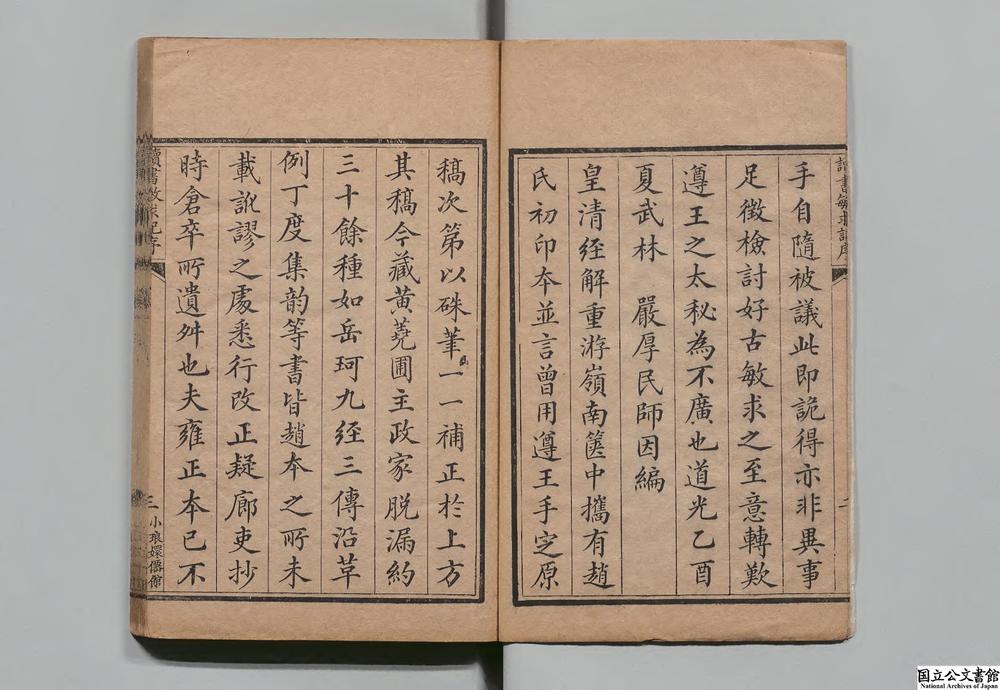 讀書敏求記序
二
手自隨被議此即詭得亦非異事
足徵檢討好古敏求之至意轉歎
遵王之太秘為不廣也道光乙酉
夏武林　嚴厚民師因編
皇清經解重游嶺南篋中攜有趙
氏初印本並言曾用遵王手定原
稿次第以硃筆一一補正於上方
其稿今藏黃蕘圃主政家脫漏約
三十餘種如岳珂九經三傳沿革
例丁度集韵等書皆趙本之所未
載訛謬之處悉行改正疑廊吏抄
時倉卒所遺舛也夫雍正本已不
讀書敏求記序
三
小琅嬛僊館
国立公文書館
National Archives of Japan